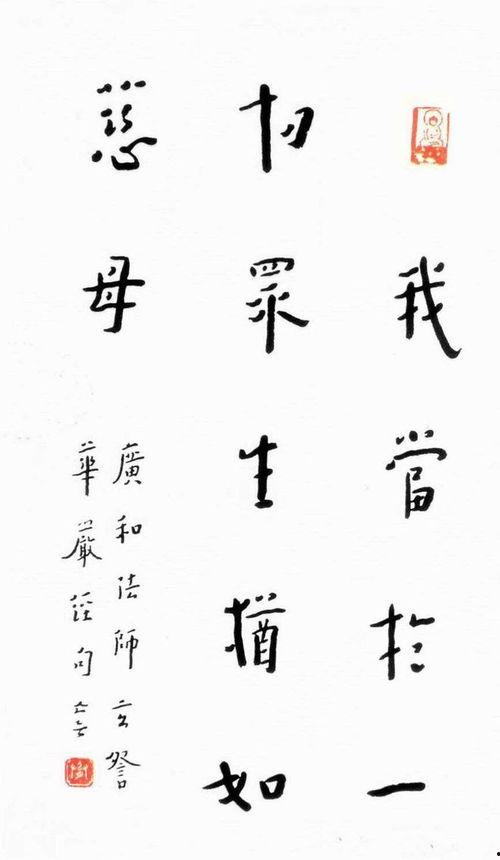 我當於一
切眾生猶如
慈母
廣和法師玄詧
華嚴經句 亡言